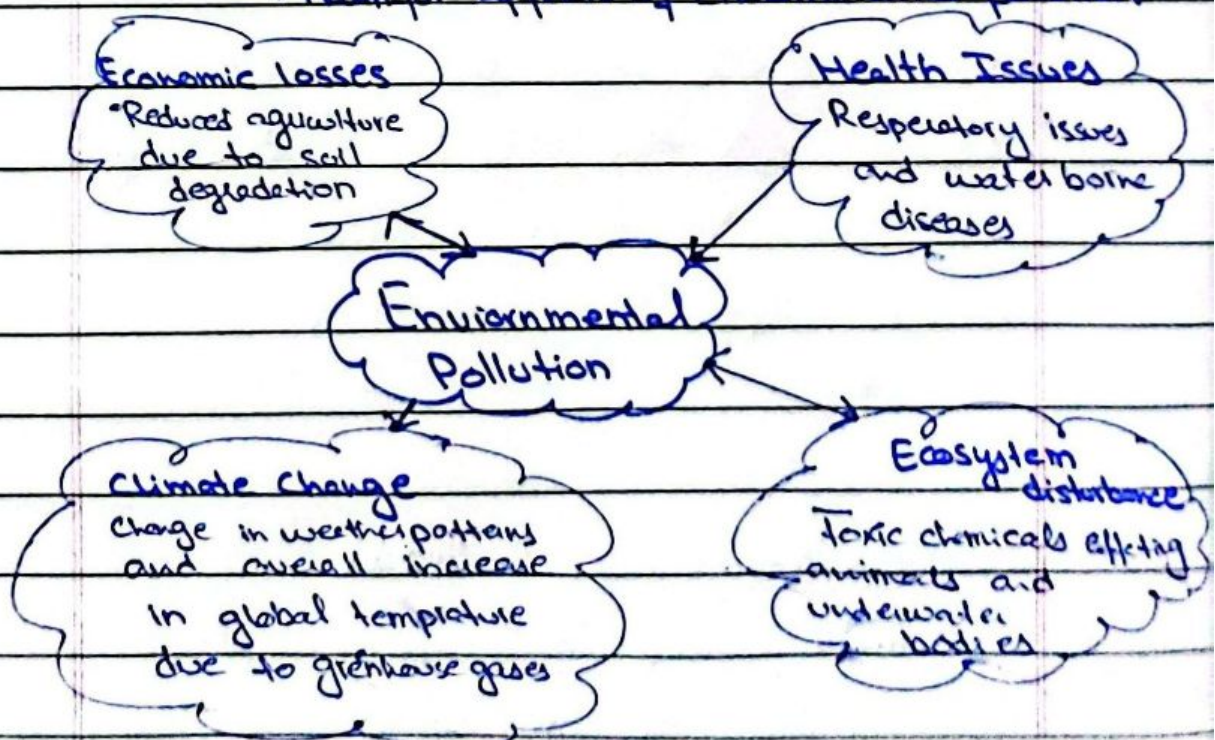 Economic losses
•Reduced aguculture
due to soil
degradation
Health Issues
Resperatory issues
and waterborne
diseases
Enviornmental
Pollution
Climate Change
Change in weather patterns
and overall increase
in global temprature
due to grenhouse gases
Ecosystem
disturbance
Toxic chemicals effeting
animals and
underwater
bodies